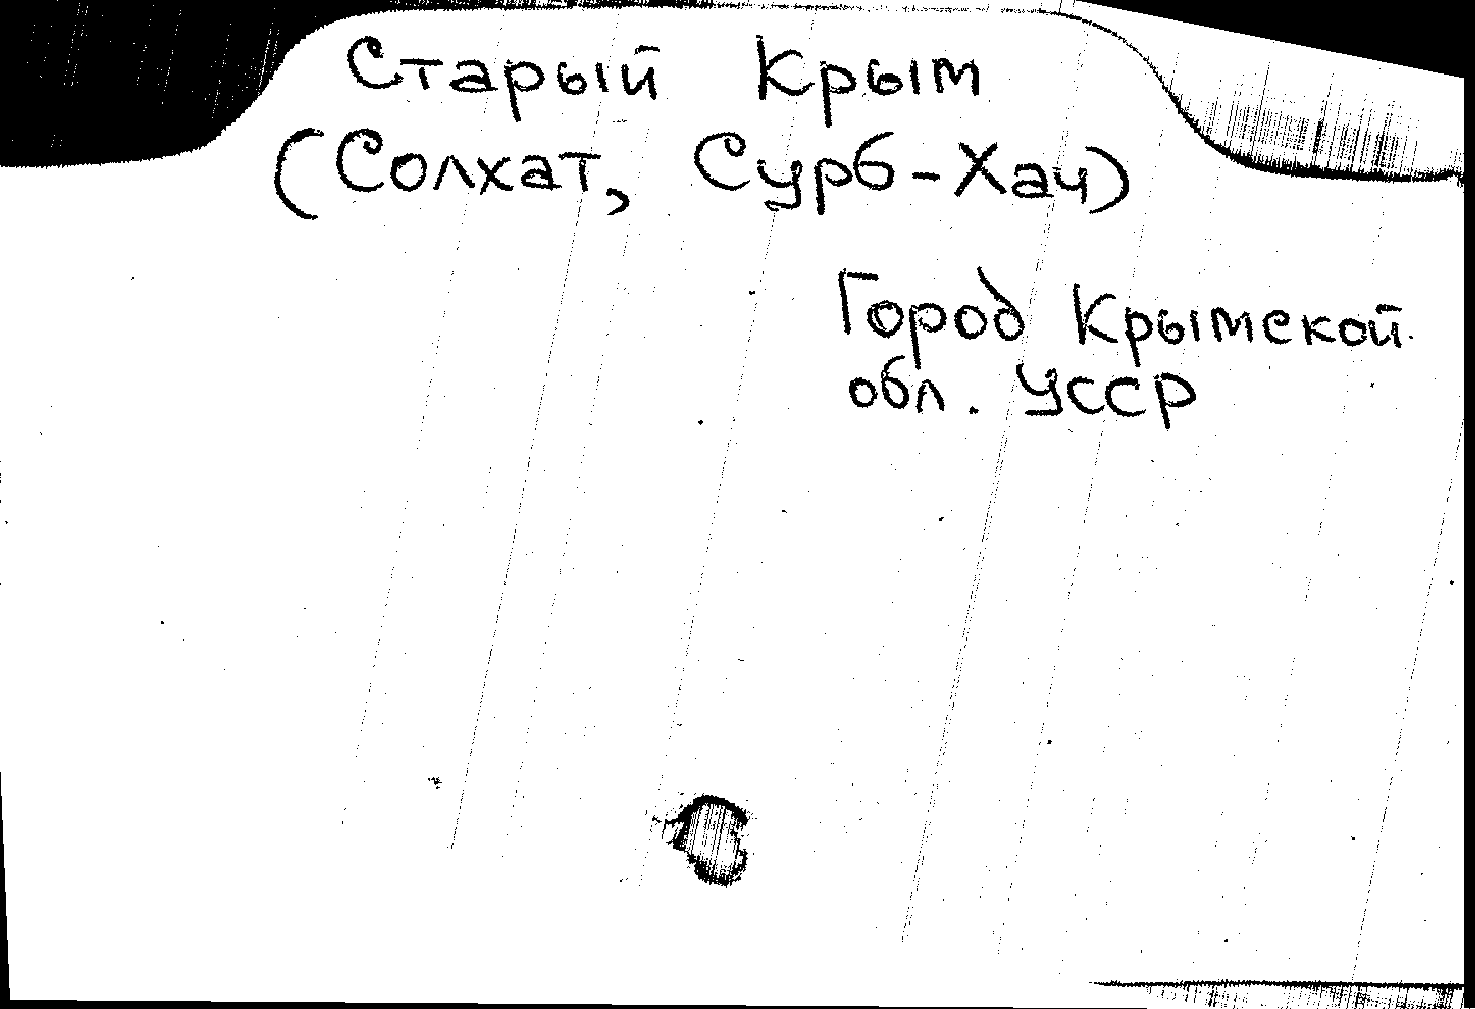 Старый Крым
(Солхат, Сурб-Хач)
Город Крымской
обл. УССР